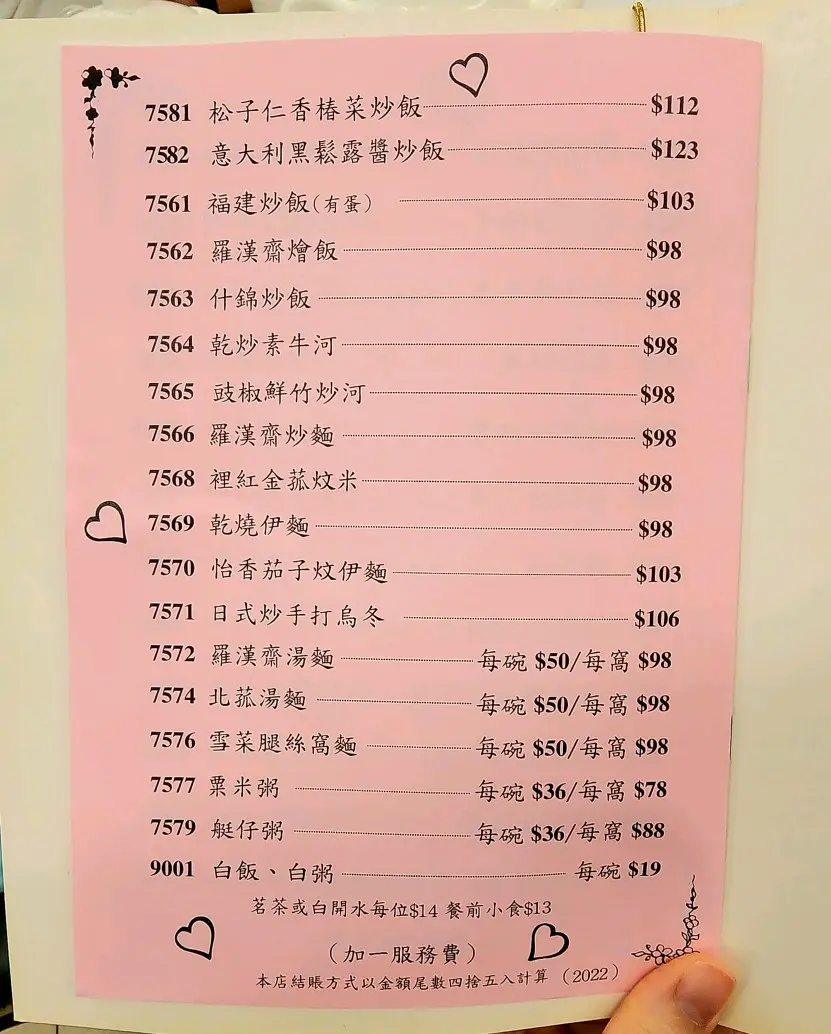 7581 松子仁香椿菜炒飯 $112
7582 意大利黑鬆露醬炒飯 $123
7561 福建炒飯(有蛋) $103
7562 羅漢齋燴飯 $98
7563 什錦炒飯 $98
7564 乾炒素牛河 $98
7565 豉椒鮮竹炒河 $98
7566 羅漢齋炒麵 $98
7568 裡紅金菰炆米 $98
7569 乾燒伊麵 $98
7570 怡香茄子炆伊麵 $103
7571 日式炒手打烏冬 $106
7572 羅漢齋湯麵 每碗 $50/每窩 $98
7574 北菰湯麵 每碗 $50/每窩 $98
7576 雪菜腿絲窩麵 每碗 $50/每窩 $98
7577 粟米粥 每碗 $36/每窩 $78
7579 艇仔粥 每碗 $36/每窩 $88
9001 白飯、白粥 每碗 $19
茗茶或白開水每位$14 餐前小食$13
(加一服務費)
本店結賬方式以金額尾數四捨五入計算 (2022)